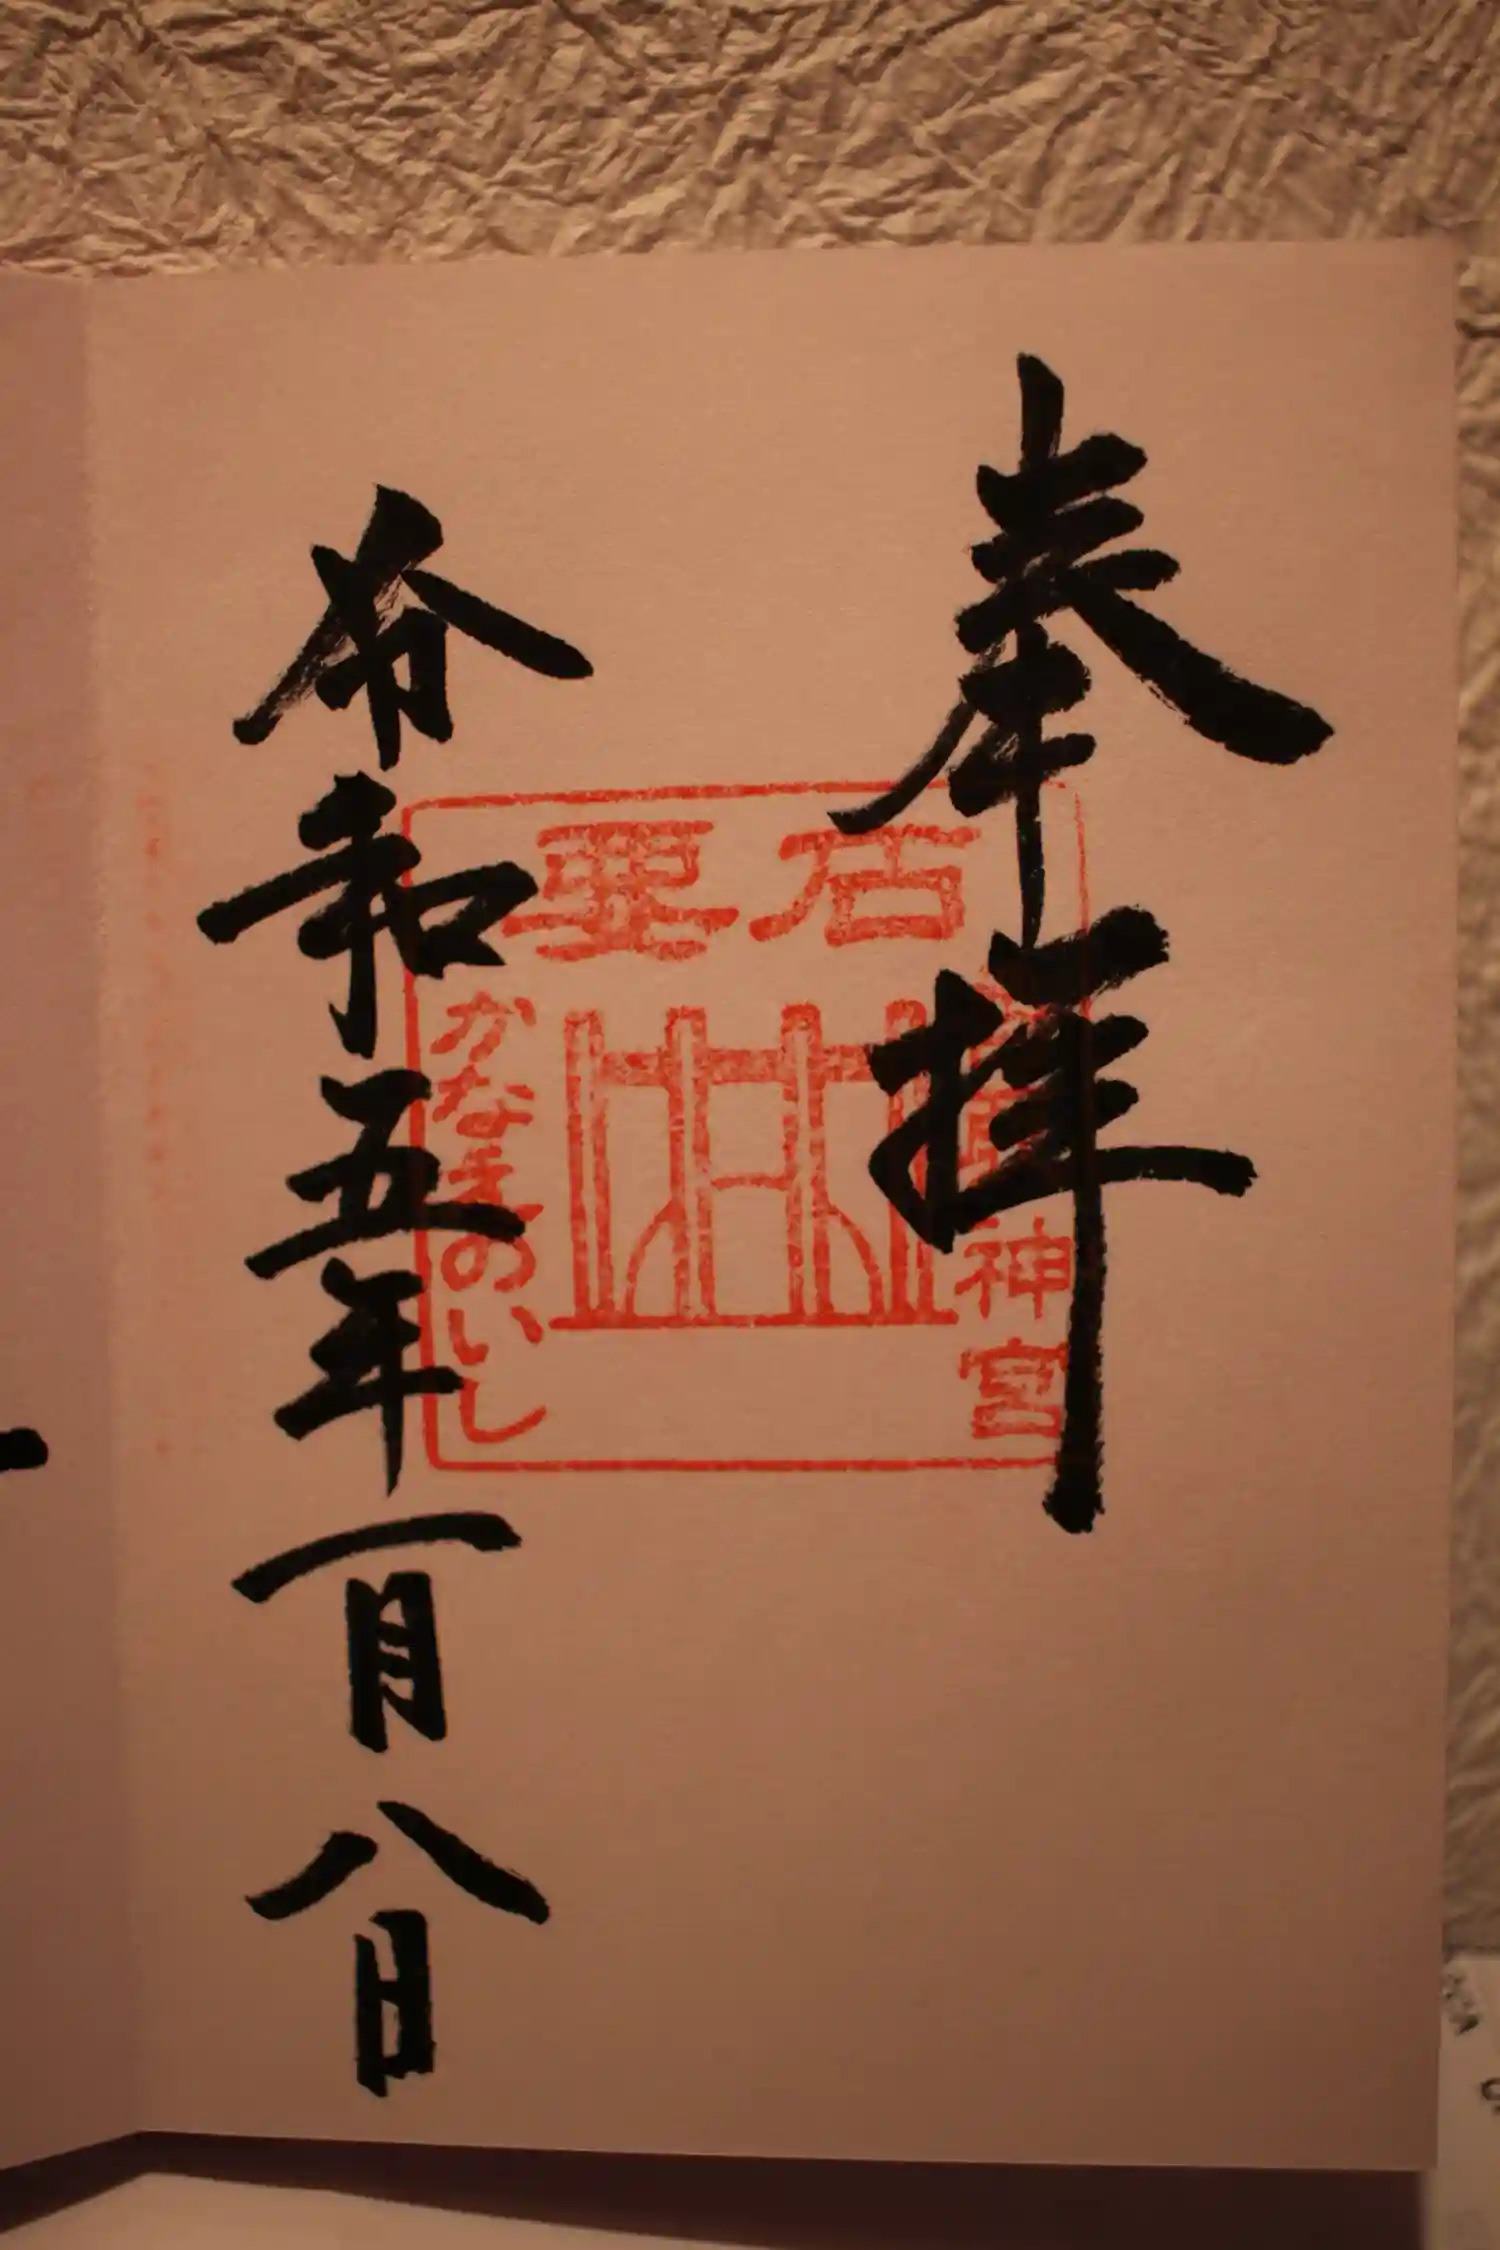 奉拝
要石
神宮
かなまのいし
令和五年一月八日